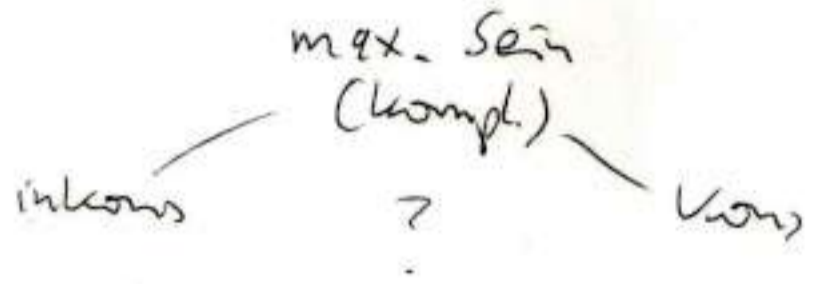 max. Sein
(kompl.)
inkons ? kons